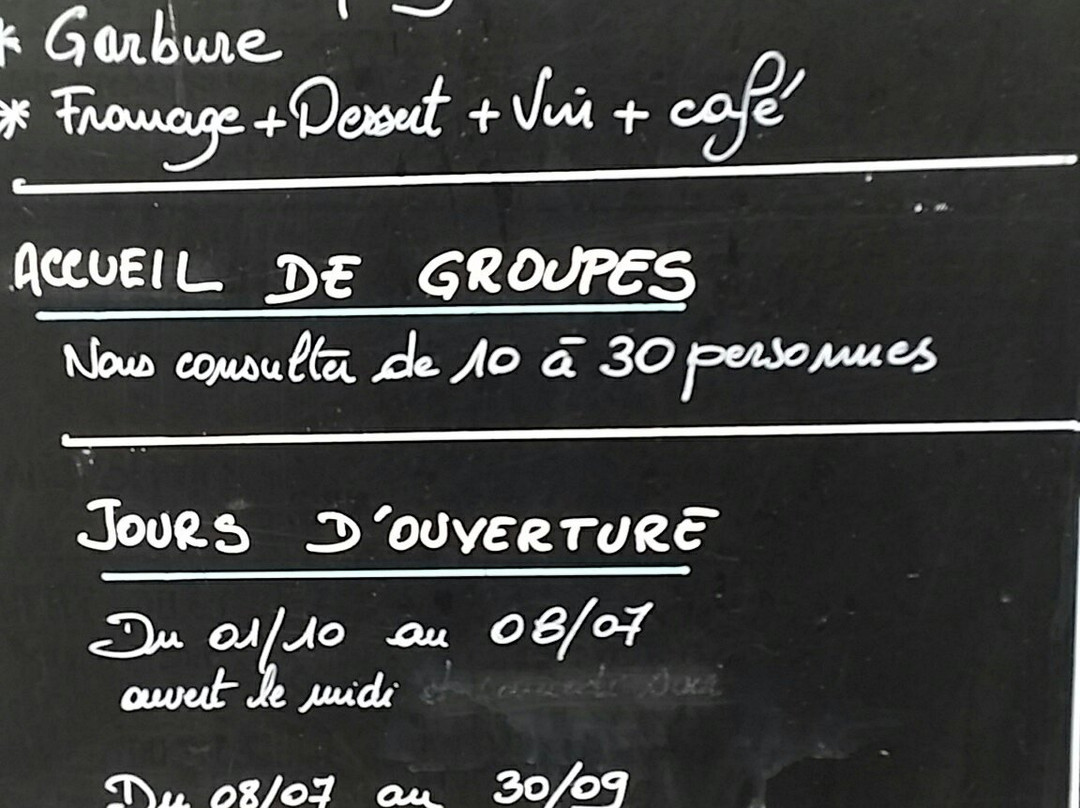 * Garbure
* Fromage + Dessert + Vin + café
ACCUEIL DE GROUPES
Nous consulter de 10 à 30 personnes
JOURS D'OUVERTURE
Du 01/10 au 08/07
ouvert le midi
Du 08/07 au 30/09